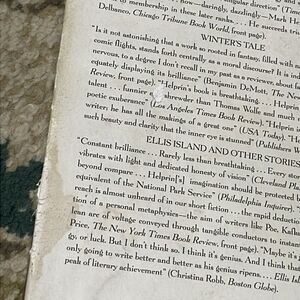 angular direction" (Times
by membership in these later ranks. . . . He succeeds tri
Delbanco, Chicago Tribune Book World, front page).
WINTER'S TALE
"Is it not astonishing that a work so rooted in fantasy, filled with
comic flights, stands forth centrally as a moral discourse? It is ind
nervous, to a degree I don't recall in my past as a reviewer, about fa
equately displaying its brilliance" (Benjamin DeMott, The New
Review, front page). "Helprin's book is breathtaking. . . . Helpri
talent . . . funnier and shrewder than Thomas Wolfe, and much
poetic exuberance" (Los Angeles Times Book Review). "Helprin
writer; he has all the makings of a great one" (USA Today). "H
such beauty and clarity that the inner eye is stunned" (Publishers W
ELLIS ISLAND AND OTHER STORIES
"Constant brilliance . . . Rarely less than breathtaking . . . Every sto
vibrates with light and dedicated honesty of vision" (Cleveland Pla
beyond compare . . . Helprin['s] imagination should be protected b
equivalent of the National Park Service" (Philadelphia Inquirer).
reach is almost unheard of in our short fiction . . . the rapid deduc
tion of a personal metaphysics—the aim of writers like Poe, Kafka
lean arc of voltage conveyed through tangible conductors to instan
Price, The New York Times Book Review, front page). "Maybe it's
gy, or luck. But I don't think so. I think it's genius. And I think that
only going to write better and better as his genius ripens. . . . Ellis Isl
peak of literary achievement" (Christina Robb, Boston Globe).